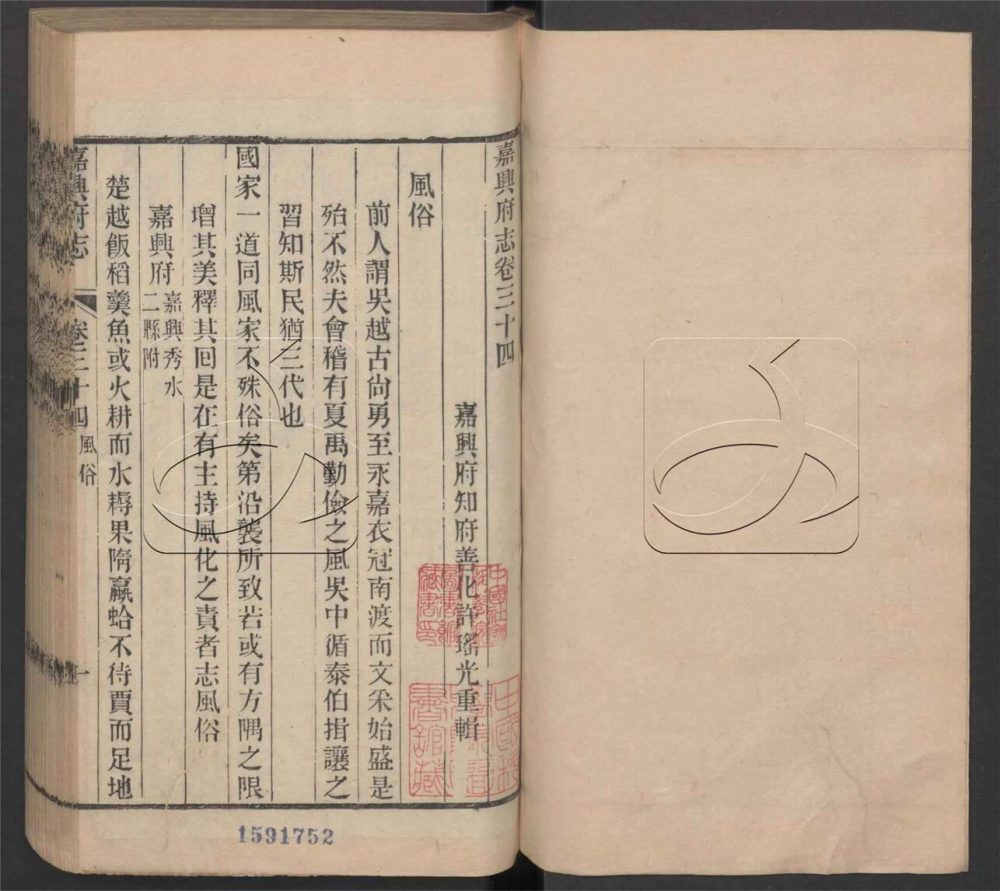 嘉興府志卷三十四
嘉興府知府善化許瑤光重輯
風俗
前人謂吳越古尙勇至永嘉衣冠南渡而文采始盛是
殆不然夫會稽有夏禹勤儉之風吳中循泰伯揖讓之
習知斯民猶三代也
國家一道同風家不殊俗矣第沿襲所致若或有方隅之限
增其美釋其回是在有主持風化之責者志風俗
嘉興府嘉興秀水
二縣附
楚越飯稻羹魚或火耕而水耨果隋蠃蛤不待賈而足地
嘉興府志 卷三十四 風俗 一
1591752